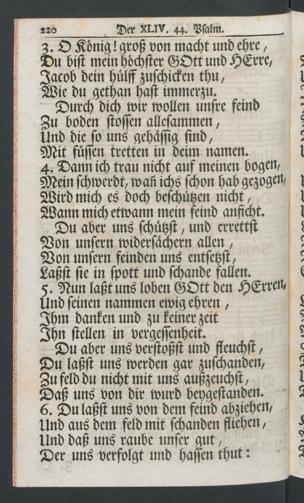 220 Der XLIV. 44. Psalm.
3. O König! groß von macht und ehre,
Du bist mein höchster GOtt und HErre,
Jacob dein hülff zuschicken thu,
Wie du gethan hast immerzu.
Durch dich wir wollen unsre feind
Zu boden stossen allesammen,
Und die so uns gehässig sind,
Mit füssen tretten in deim namen.
4. Dann ich trau nicht auf meinen bogen,
Mein schwerdt, wañ ichs schon hab gezogen,
Wird mich es doch beschützen nicht,
Wann mich etwann mein feind anficht.
Du aber uns schützst, und errettst
Von unsern widersächern allen,
Von unsern feinden uns entsetzst,
Laßst sie in spott und schande fallen.
5. Nun laßt uns loben GOtt den HErren,
Und seinen nammen ewig ehren,
Ihm danken und zu keiner zeit
Ihn stellen in vergessenheit.
Du aber uns verstoßst und fleuchst,
Du laßst uns werden gar zuschanden,
Zu feld du nicht mit uns außzeuchst,
Daß uns von dir wurd beygestanden.
6. Du laßst uns von dem feind abziehen,
Und aus dem feld mit schanden fliehen,
Und daß uns raube unser gut,
Der uns verfolgt und hassen thut: